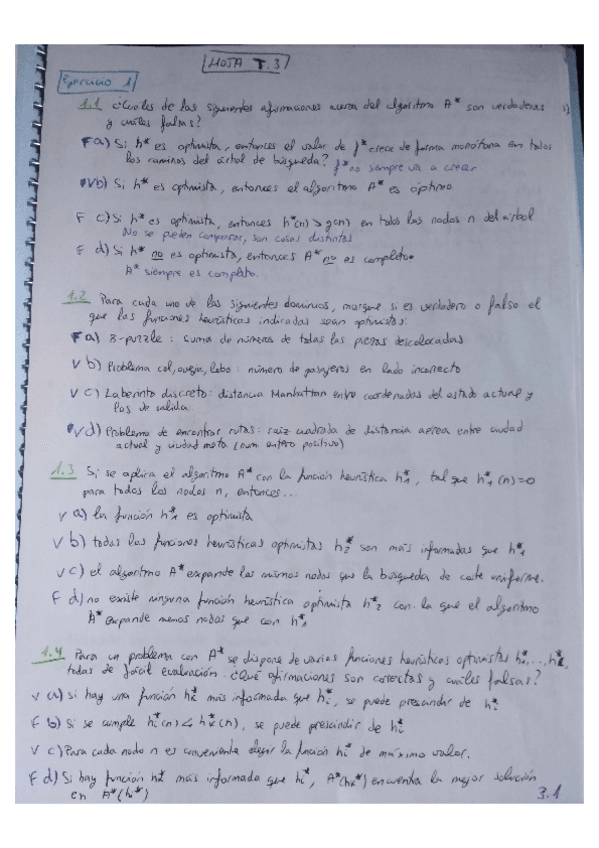 HOJA T.3
Ejercicio 1
1.1 ¿Cuáles de las siguientes afirmaciones acerca del algoritmo A* son verdaderas
y cuáles falsas?
F a) Si h* es optimista, entonces el valor de f* crece de forma monótona en todos
los caminos del árbol de búsqueda? f* no siempre va a crecer
V b) Si h* es optimista, entonces el algoritmo A* es óptimo
F c) Si h* es optimista, entonces h*(n) > g(n) en todos los nodos n del árbol
No se pueden comparar, son cosas distintas
F d) Si h* no es optimista, entonces A* no es completo.
A* siempre es completo.
1.2 Para cada uno de los siguientes dominios, marque si es verdadero o falso el
que las funciones heurísticas indicadas sean optimistas:
F a) 8-puzzle: suma de números de todas las piezas descolocadas
V b) Problema col, oveja, lobo: número de pasajeros en lado incorrecto
V c) Laberinto discreto: distancia Manhattan entre coordenadas del estado actual y
los de salida
V d) Problema de encontrar rutas: raíz cuadrada de distancia aerea entre ciudad
actual y ciudad meta (num. entero positivo)
1.3 Si se aplica el algoritmo A* con la función heurística h*1, tal que h*1(n)=0
para todos los nodos n, entonces...
V a) la función h*1 es optimista
V b) todas las funciones heurísticas optimistas h*2 son más informadas que h*1
V c) el algoritmo A* expande los mismos nodos que la búsqueda de coste uniforme.
F d) no existe ninguna función heurística optimista h*2 con la que el algoritmo
A* expande menos nodos que con h*1
1.4 Para un problema con A* se dispone de varias funciones heurísticas optimistas h*1,...,h*k,
todas de fácil evaluación. ¿Qué afirmaciones son correctas y cuáles falsas?
V a) si hay una función h*k más informada que h*i, se puede prescindir de h*i
F b) Si se cumple h*i(n) < h*k(n), se puede prescindir de h*i
V c) Para cada nodo n es conveniente elegir la función h*i de máximo valor.
F d) Si hay función h*k más informada que h*i, A*(h*k) encuentra la mejor solución
en A*(h*)
3.1